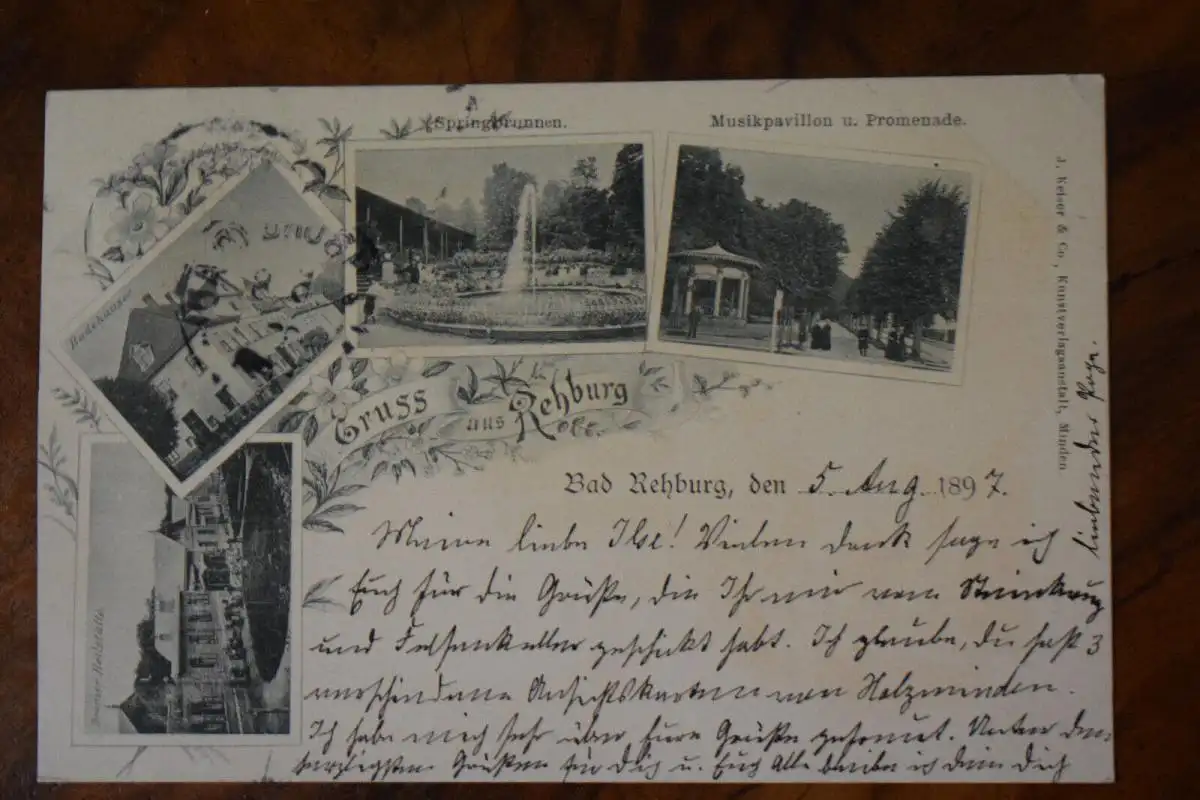 Springbrunnen.
Musikpavillon u. Promenade.
Badehäuser
Bremer Heilstätte.
J. Keiser & Co., Kunstverlagsanstalt, Minden
Gruss aus Rehburg
Bad Rehburg, den 5. Aug. 1897.
Meine liebe Ilse! Vielen dank sage ich
Euch für die Grüße, die Ihr mir vom Steinkrug
und Felsenkeller geschickt habt. Ich glaube, du hast 3
verschiedene Ansichtskarten von Holzminden.
Ich habe mich sehr über Eure Grüße gefreut. Unter den
herzlichsten Grüßen für Dich u. Euch Alle bleibe ich dein Dich
liebender